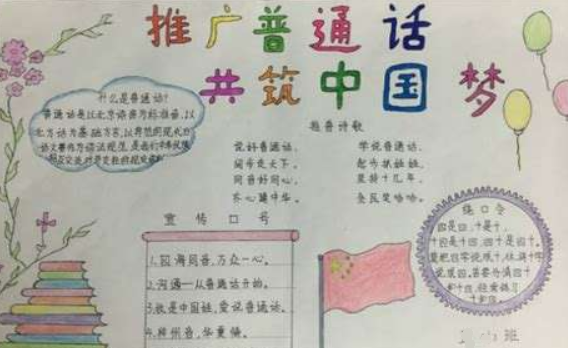 推广普通话
共筑中国梦
什么是普通话?
普通话是以北京语音为标准音,以
北方话为基础方言,以典范的现代白
话文著作为语法规范,是我们中华民族
推普诗歌
说好普通话,
闯步走天下。
同音好同心,
齐心建中华。
学说普通话,
起步
坚持十几年,
全民笑哈哈。
宣传口号
1.四海同音,万众一心。
2.沟通—从普通话开始。
3.我是中国娃,爱说普通话。
4.神州音,华夏情。
绕口令
四是四,十是十,
十四是十四,四十是四十。
班